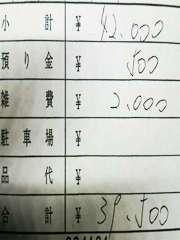 小計 ¥ 42.000
預り金 ¥ 500
雑費 ¥ 2.000
駐車場 ¥
品代 ¥
合計 ¥ 39.500